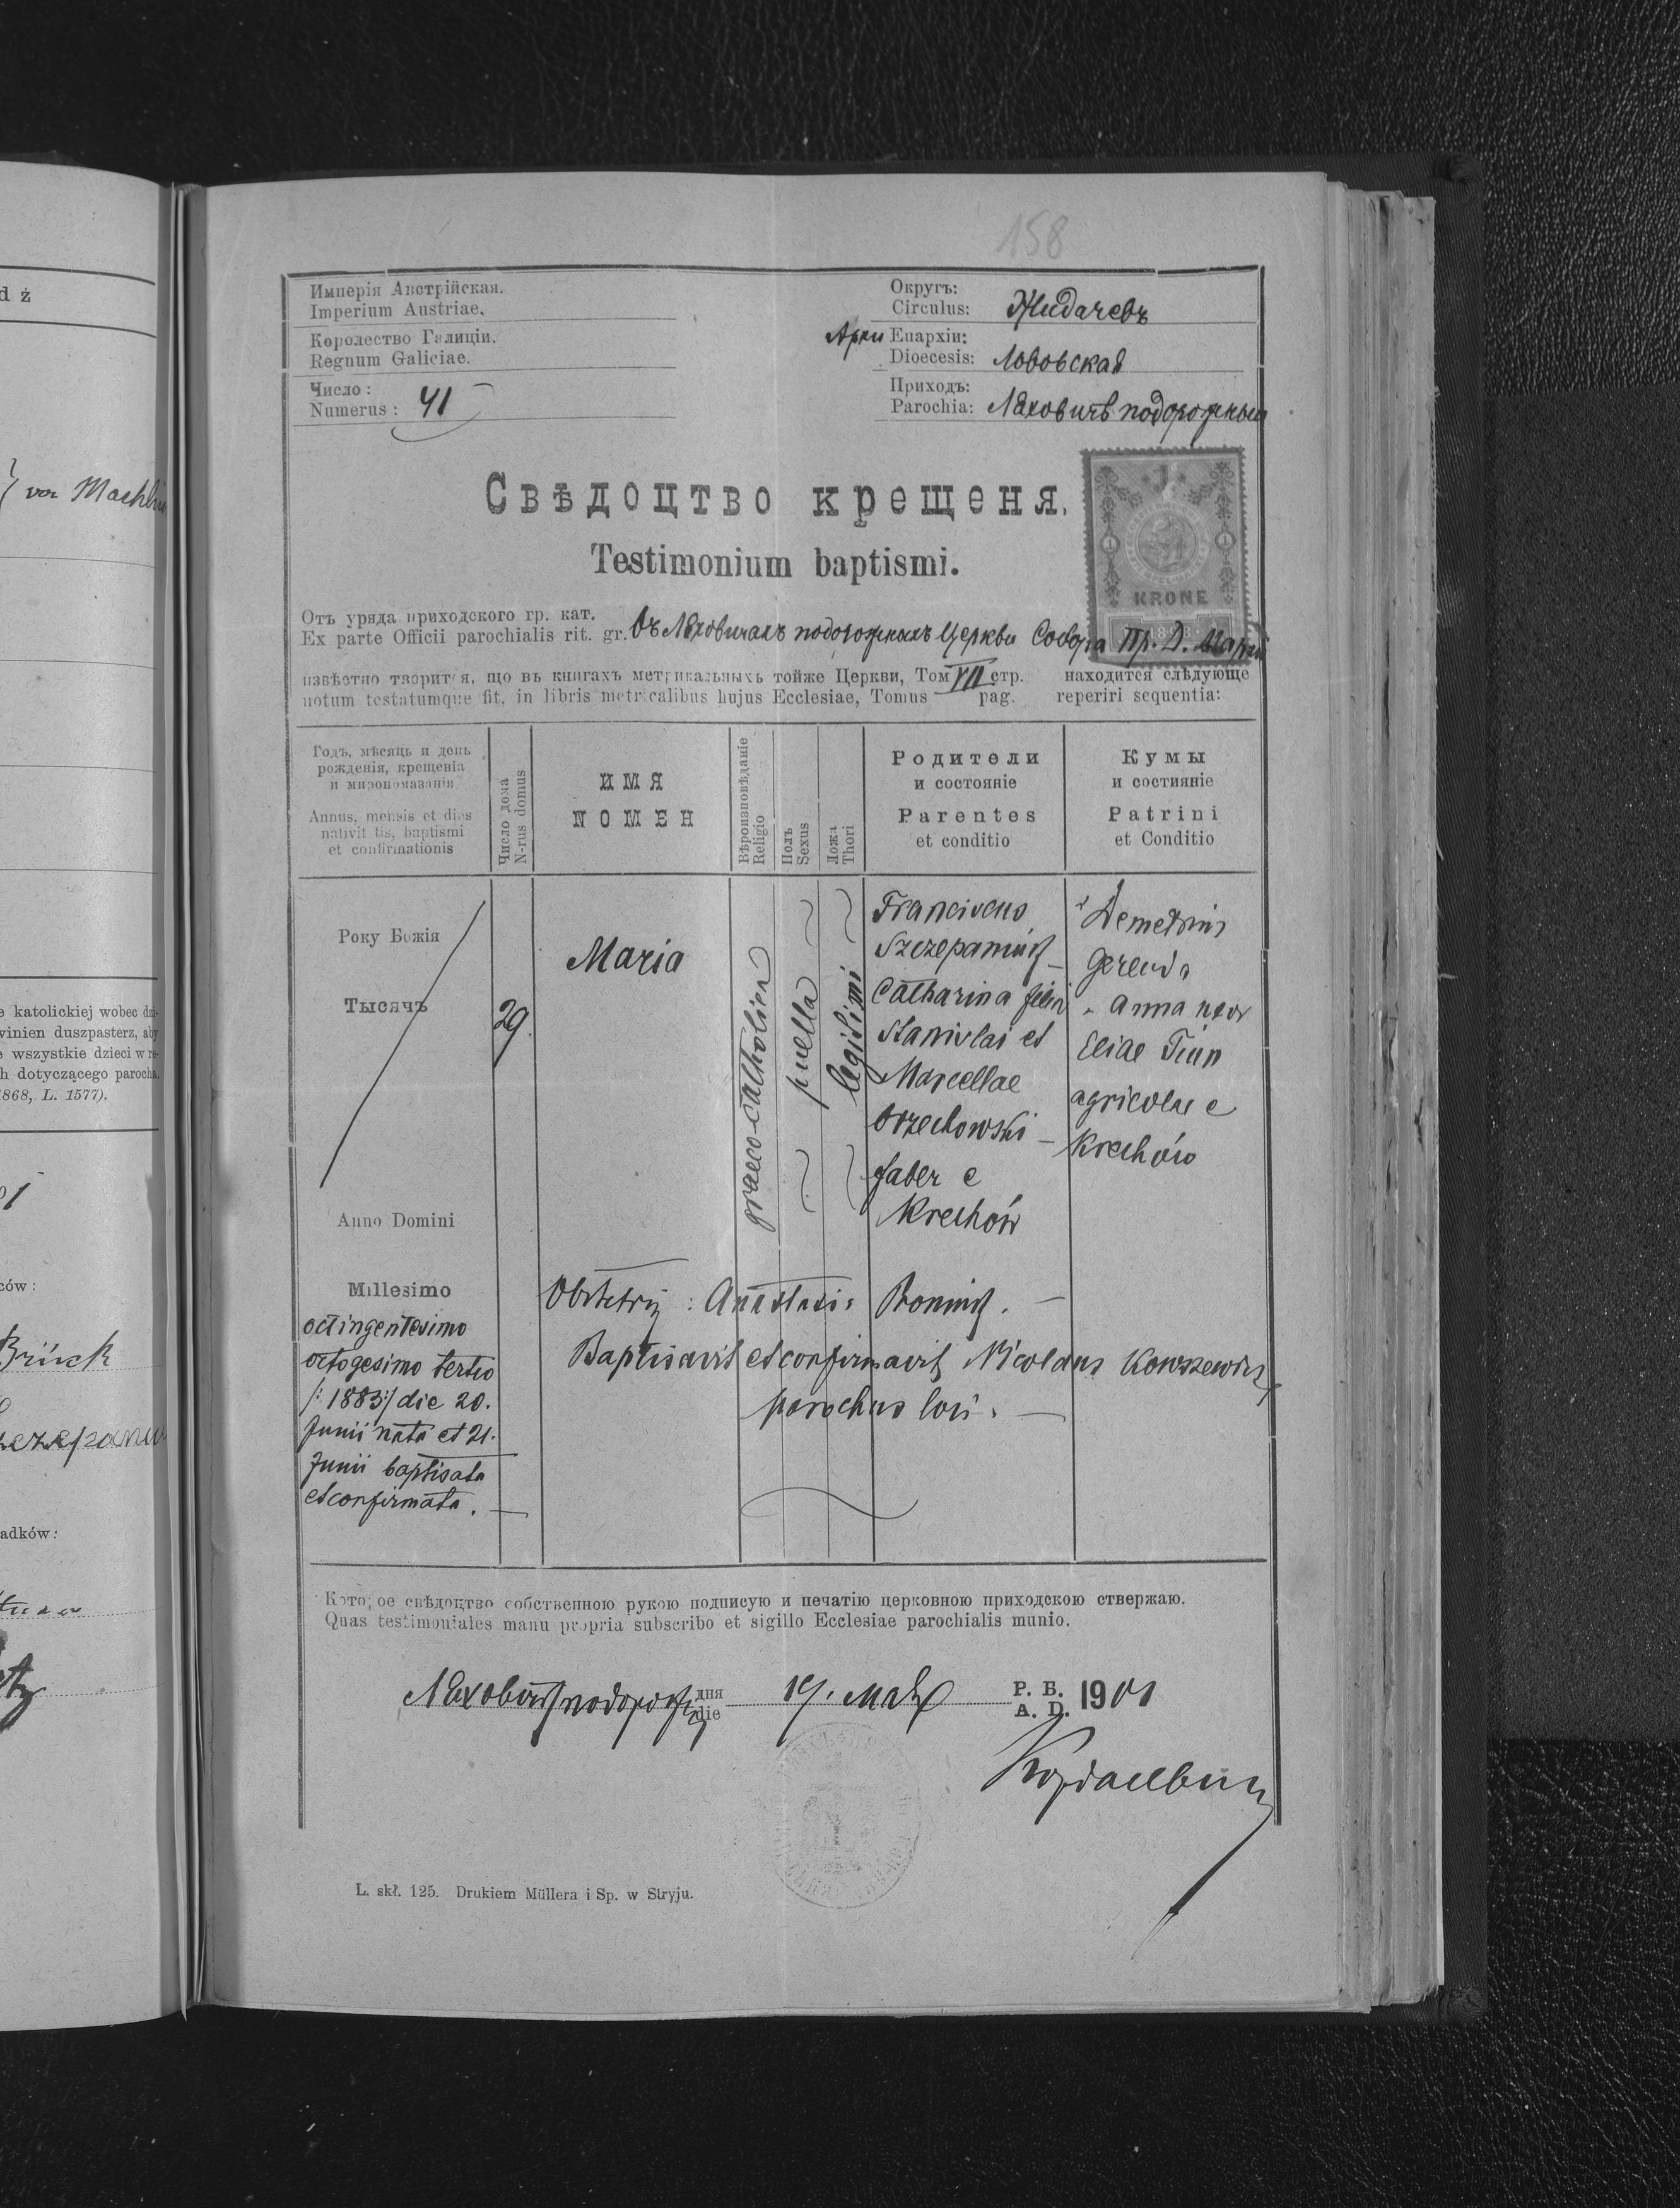 158
d ż
Имперія Австрійская.
Imperium Austriae.
Королество Галиціи.
Regnum Galiciae.
Число:
Numerus: 41
Округъ:
Circulus: Жидачевъ
Архи Епархіи:
Dioecesis: Львовская
Приходъ:
Parochia: Ляховичѣ подорожныи
Свѣдоцтво крещеня.
Testimonium baptismi.
1
KRONE
Отъ уряда приходского гр. кат.
Ex parte Officii parochialis rit. gr. Въ Ляховичахъ подорожныхъ Церкви Собора Пр. Д. Маріи
извѣстно творится, що въ книгахъ метрикальныхъ тойже Церкви, Том VII стр. находится слѣдующе
notum testatumque fit, in libris metricalibus hujus Ecclesiae, Tomus pag. reperiri sequentia:
Годъ, мѣсяць и день
рожденія, крещенія
и миропомазанія
Annus, mensis et dies
nativitatis, baptismi
et confirmationis
Число дома
N-rus domus
ИМЯ
NOMEN
Вѣроисповѣданіе
Religio
Полъ
Sexus
Ложа
Thori
Родители
и состояніе
Parentes
et conditio
Кумы
и состияніе
Patrini
et Conditio
Року Божія
Тысячъ
Anno Domini
Millesimo
octingentesimo
octogesimo tertio
/: 1883 :/ die 20.
Junii nata et 21.
Junii baptisata
et confirmata.
29.
Maria
graeco-catholica
puella
legitimi
Franciscus
Szczepaniuk
Catharina filia
Stanislai et
Marcellae
Orzechowski
faber e
Krechów
Demetrius
Gerenda
Anna uxor
Eliae Tiun
agricolae e
Krechów
Obstetrix: Anastasia
Baptisavit et confirmavit Nicolaus
parochus loci.
Котооое свѣдоцтво собственною рукою подписую и печатію церковною приходскою ствержаю.
Quas testimoniales manu propria subscribo et sigillo Ecclesiae parochialis munio.
дня
die 19. Мая Р. Б.
A. D. 1901
L. skł. 125. Drukiem Müllera i Sp. w Stryju.
von
e katolickiej wobec dzi-
winien duszpasterz, aby
e wszystkie dzieci w re-
h dotyczącego parocha.
1868, L. 1577).
ców:
adków: